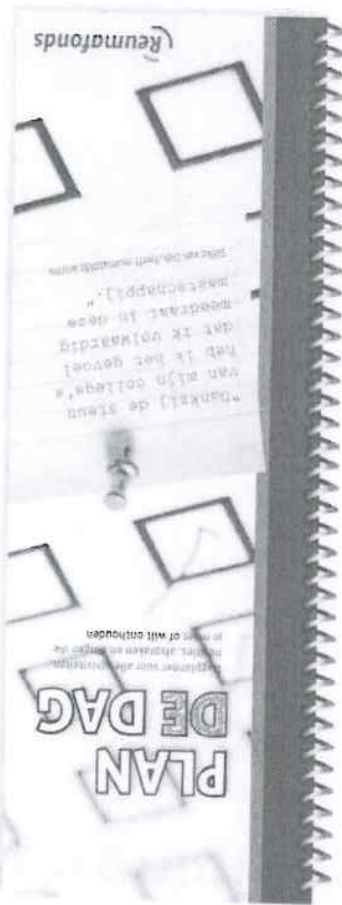 PLAN
DE DAG
Dagplanner voor alle activiteiten,
notities, afspraken en dingen die
je moet of wilt onthouden
"Dankzij de steun
van mijn collega's
heb ik het gevoel
dat ik volwaardig
meedraai in deze
maatschappij."
heeft reumatoïde artritis
Reumafonds